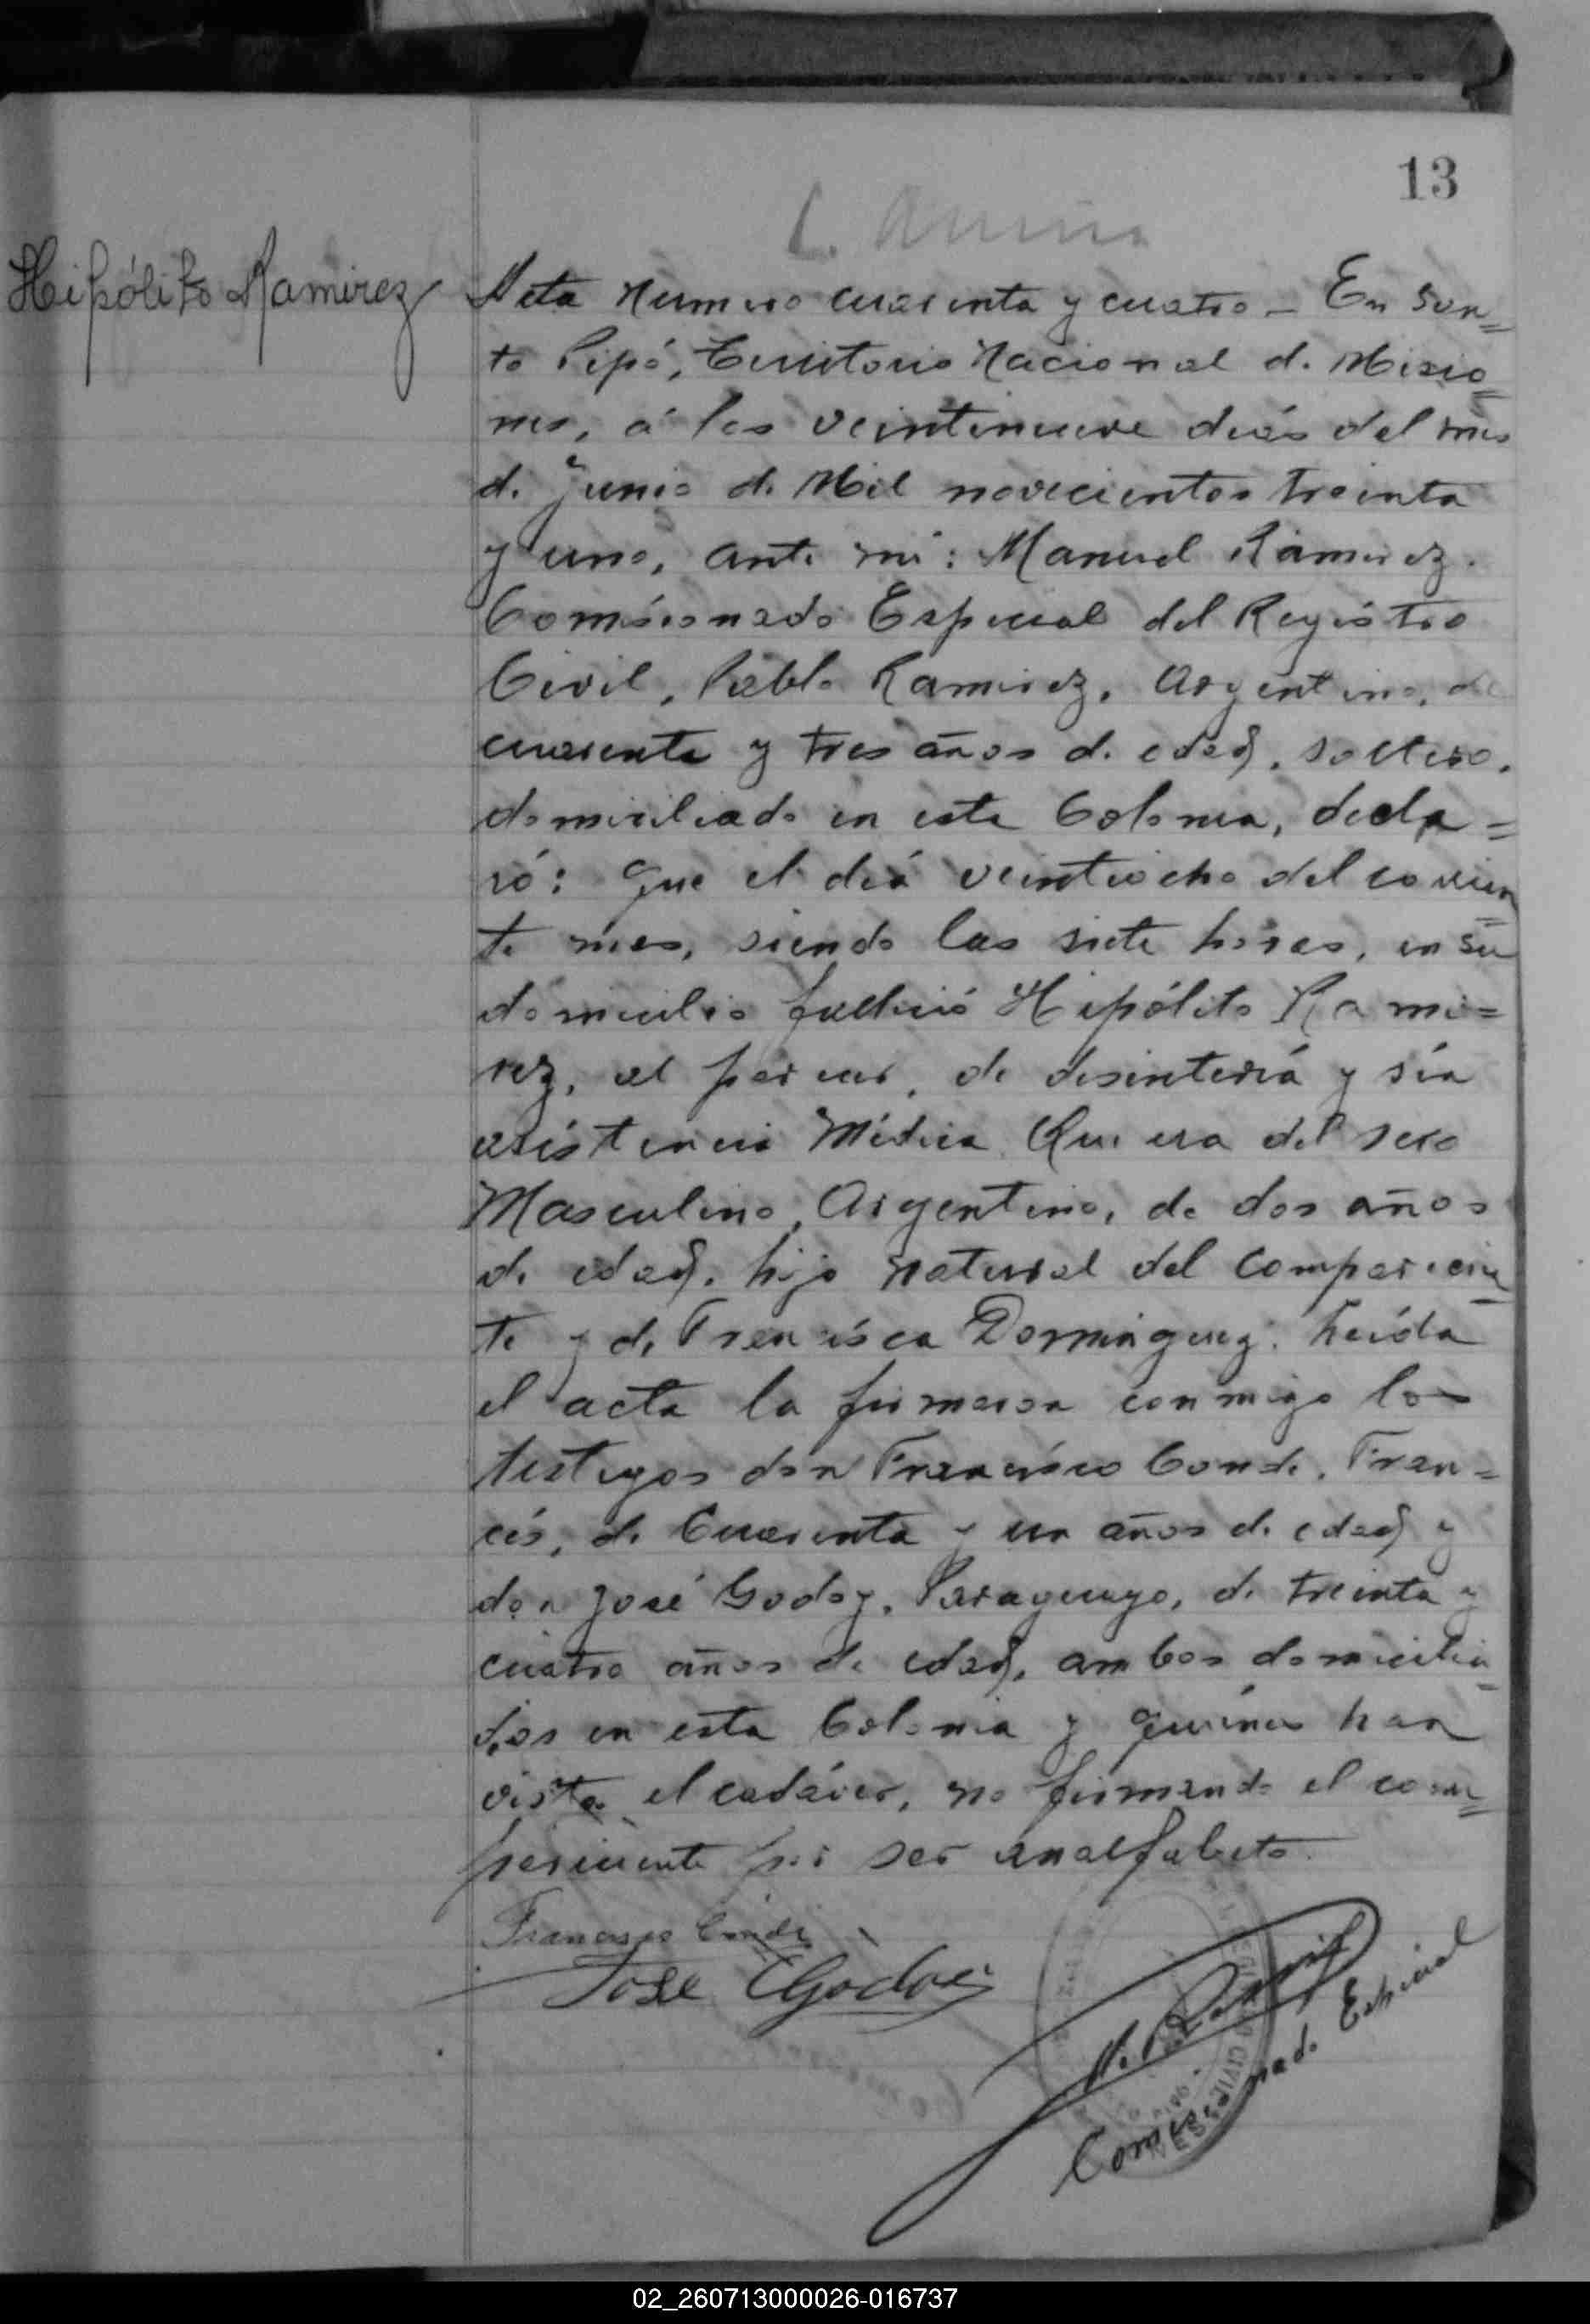 13
Hipólito Ramirez
Acta Numero cuarenta y cuatro - En San=
to Pipó, Territorio Nacional de Misio=
nes, á los veintinueve diás del mes
de Junio de Mil novecientos treinta
y uno, ante mi: Manuel Ramirez.
Comisionado Especial del Registro
Civil, Pablo Ramirez, Argentino, de
cuarenta y tres años de edad, soltero,
domiciliado en esta Colonia, decla=
ró: Que el diá veintiocho del corrien=
te mes, siendo las siete horas, en su
domicilio falleció Hipólito Rami=
rez, al parecer, de desinteriá y sín
asistencia Médica Que era del sexo
Masculino, Argentino, de dos años
de edad, hijo natural del comparecien=
te y de Francisca Dominguez. Leída
el acta la firmaron conmigo los
testigos don Francisco Conde, Fran=
cés, de Cuarenta y un años de edad y
don José Godoy, Paraguayo, de treinta y
cuatro años de edad, ambos domicilia=
dos en esta Colonia y quiénes han
visto el cadáver, no firmando el com=
pareciente por ser analfabeto.
Francisco Conde
Jose Godoi
M. Ramirez
Comisionado Especial
REGISTRO CIVIL
02_260713000026-016737